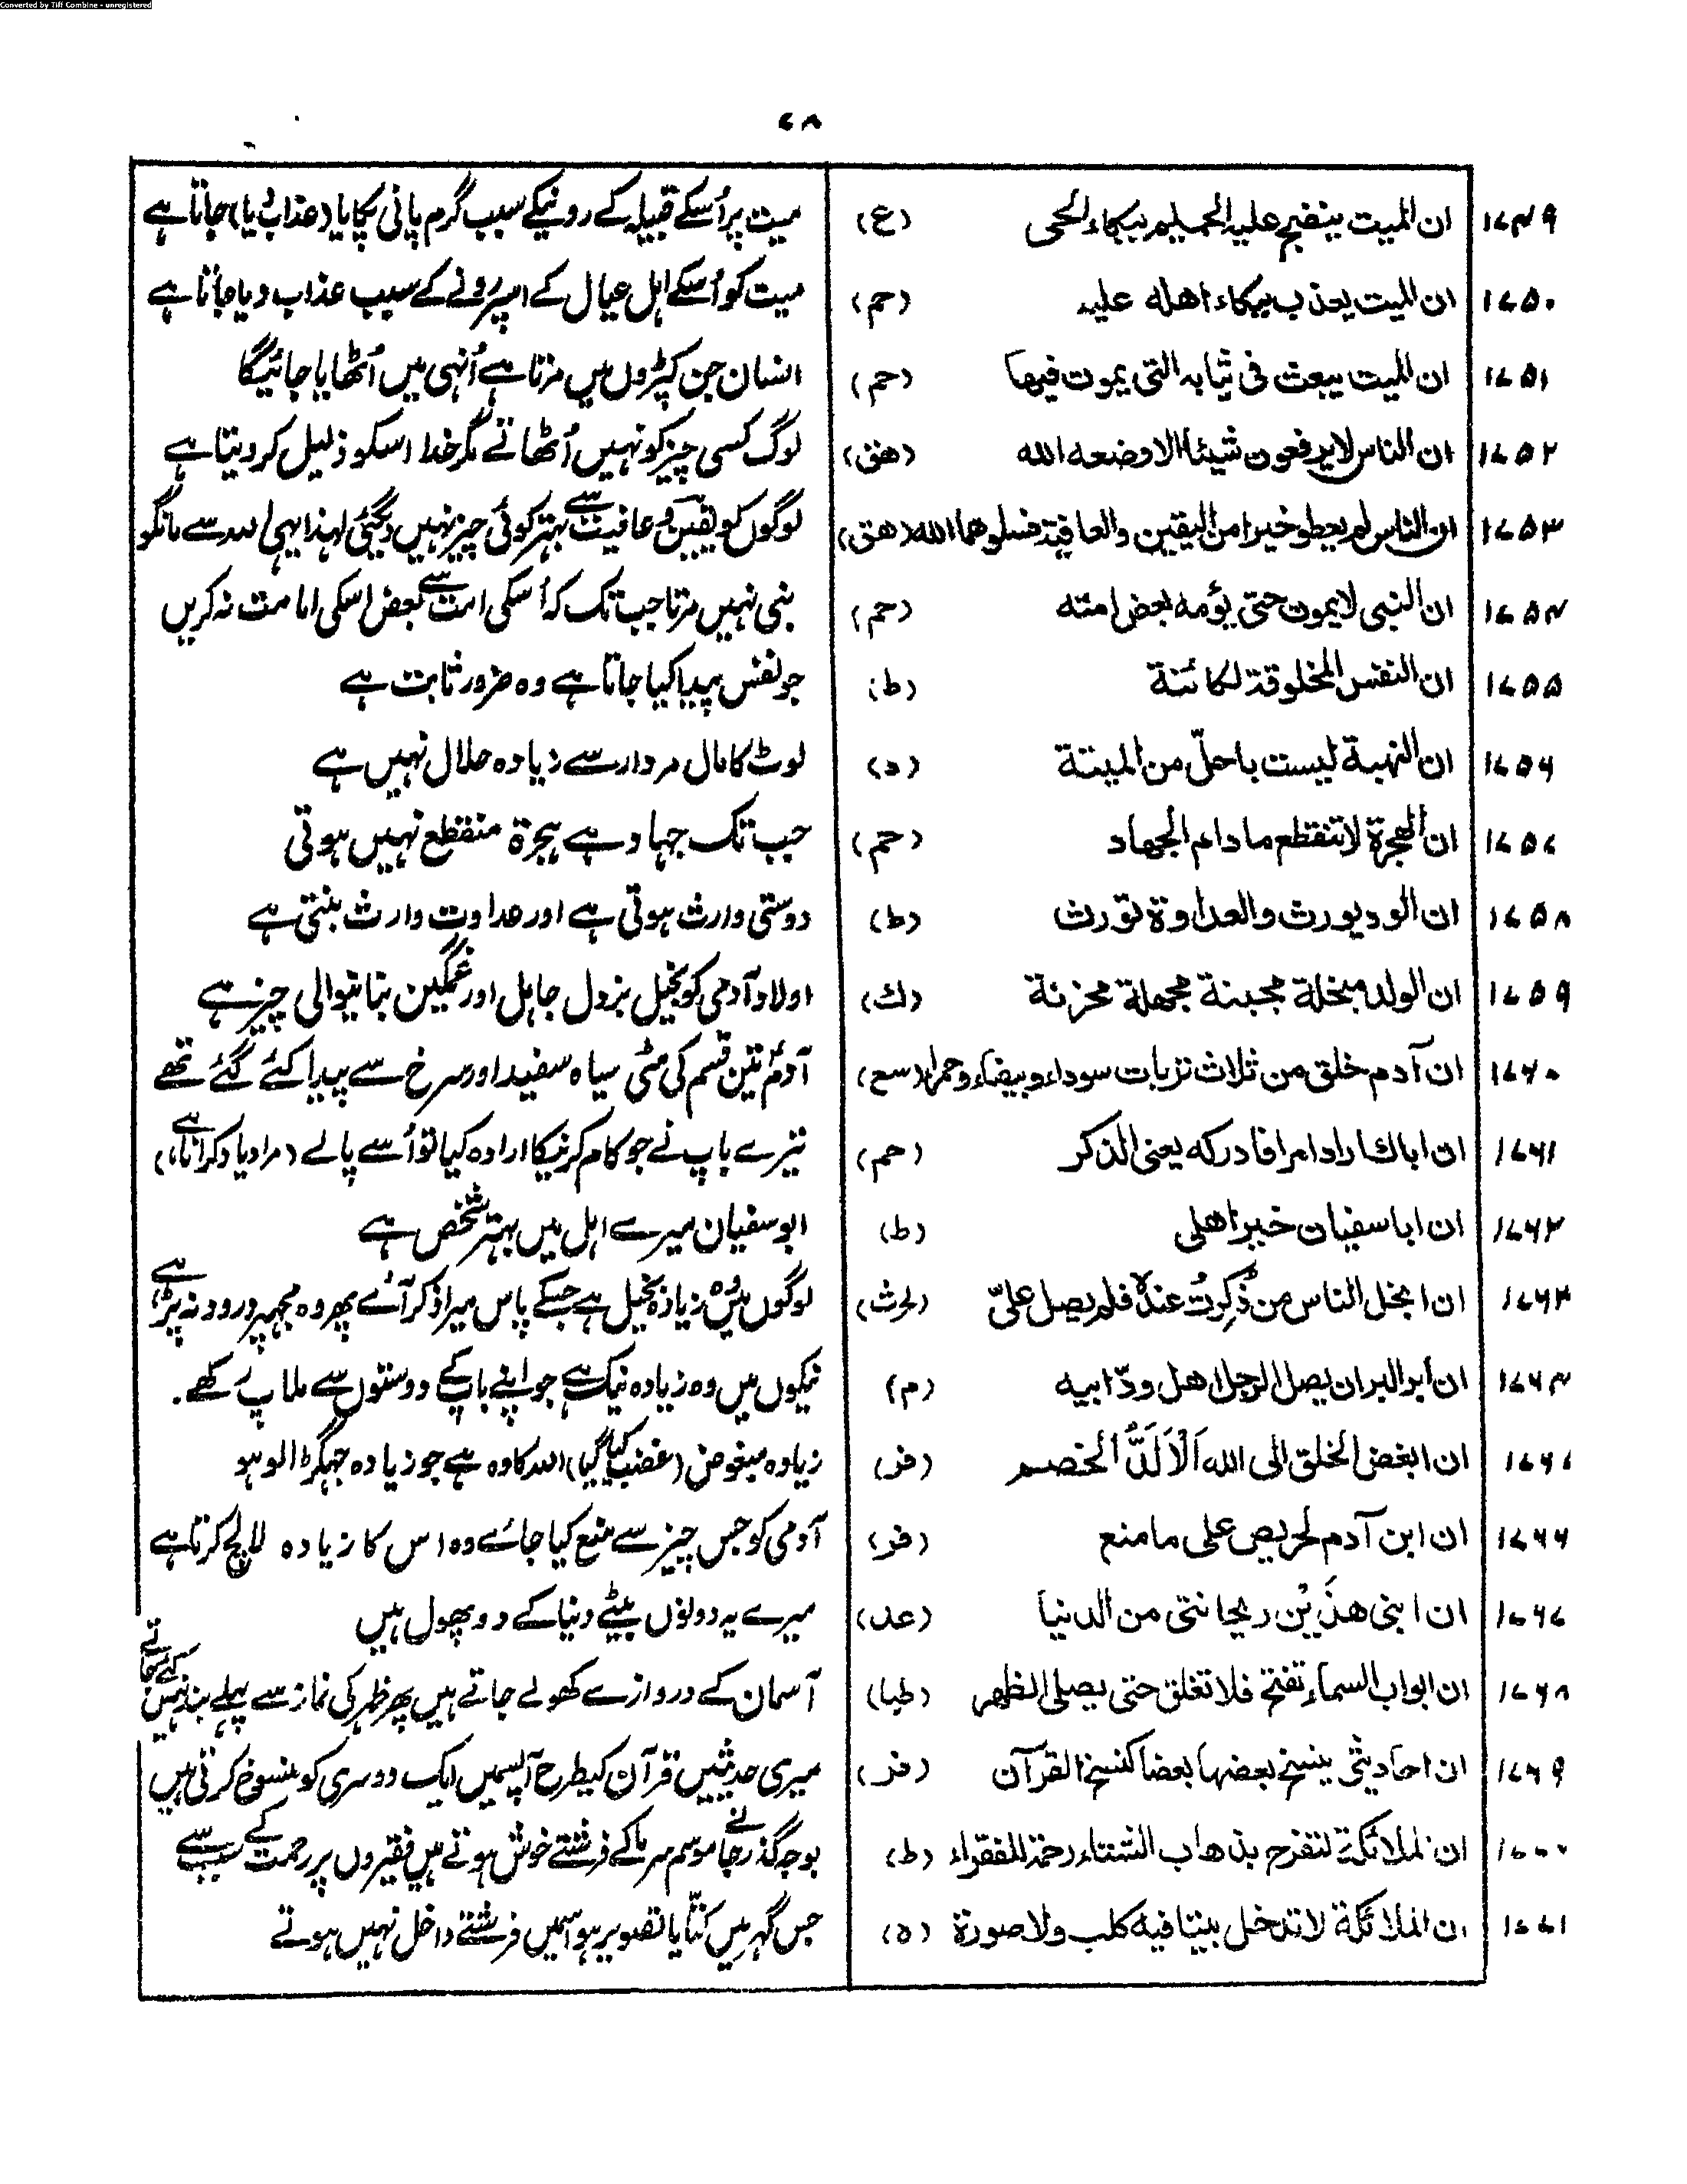 Converted by Tiff Combine - unregistered
۷۸
۱۷۴۹ ان المیت ینضح علیه الحمیم ببکاء الحی (ع) میت پر اُسکے قبیلہ کے رونیکے سبب گرم پانی ٹپکایا (عذاب دیا) جاتا ہے
۱۷۵۰ ان المیت یعذب ببکاء اهله علیه (حم) میت کو اُسکے اہل عیال کے اسپر رونے کے سبب عذاب دیا جاتا ہے
۱۷۵۱ ان المیت یبعث فی ثیابه التی یموت فیها (حم) انسان جن کپڑوں میں مرتا ہے اُنہی میں اُٹھایا جائیگا
۱۷۵۲ ان الناس لا یرفعون شیئا الا وضعه الله (هق) لوگ کسی چیز کو نہیں اُٹھاتے مگر خدا اسکو ذلیل کر دیتا ہے
۱۷۵۳ ان الناس لم یعطو خیرا من الیقین والعافیة فسلوهما الله (هق) لوگوں کو یقین و عافیت سے بہتر کوئی چیز نہیں دیگئی لہذا یہی اللہ سے مانگو
۱۷۵۴ ان النبی لا یموت حتی یؤمه بعض امته (حم) نبی نہیں مرتا جب تک کہ اُسکی امت سے بعض اسکی امامت نہ کریں
۱۷۵۵ ان النفس المخلوقة لکائنة (ط) جو نفس پیدا کیا جاتا ہے وہ ضرور ثابت ہے
۱۷۵۶ ان النهبة لیست باحلّ من المیتة (د) لوٹ کا مال مردار سے زیادہ حلال نہیں ہے
۱۷۵۷ ان الهجرة لا تنقطع ما دام الجهاد (حم) جب تک جہاد ہے ہجرة منقطع نہیں ہوتی
۱۷۵۸ ان الود یورث والعداوة تورث (ط) دوستی وارث ہوتی ہے اور عداوت وارث بنتی ہے
۱۷۵۹ ان الولد مبخلة مجبنة مجهلة محزنة (ك) اولاد آدمی کو بخیل بزدل جاہل اور غمگین بنانیوالی چیز ہے
۱۷۶۰ ان آدم خلق من ثلاث تربات سوداء و بیضاء و حمراء (سع) آدمؑ تین قسم کی مٹی سیاہ سفید اور سرخ سے پیدا کئے گئے تھے
۱۷۶۱ ان اباك اراد امرا فادرکه یعنی الذکر (حم) تیرے باپ نے جو کام کرنیکا ارادہ کیا تو اُسے پالے (مراد یاد کرانا ہے)
۱۷۶۲ ان ابا سفیان خیر اهلی (ط) ابوسفیان میرے اہل میں بہتر شخص ہے
۱۷۶۳ ان ابخل الناس من ذُکِرتُ عنده فلم یصل علیّ (لحرث) لوگوں میں وہ زیادہ بخیل ہے جسکے پاس میرا ذکر آئے پھر وہ مجہپر درود نہ پڑہے
۱۷۶۴ ان أبر البر ان یصل الرجل اهل ودّ ابیه (م) نیکوں میں وہ زیادہ نیک ہے جو اپنے باپ کے دوستوں سے ملاپ رکھے۔
ان ابغض الخلق الی الله اَلْاَلَدُّ الخصم (فر) زیادہ مبغوض (غضب کیا گیا) اللہ کا وہ ہے جو زیادہ جھگڑالو ہو
۱۷۶۶ ان ابن آدم لحریص علی ما منع (فر) آدمی کو جس چیز سے منع کیا جائے وہ اس کا زیادہ لالچ کرتا ہے
۱۷۶۷ ان ابنی هذَیْن ریحانتی من الدنیا (عد) میرے یہ دونوں بیٹے دنیا کے دو پھول ہیں
۱۷۶۸ ان ابواب السماء تفتح فلا تغلق حتی یصلی الظهر (طیا) آسمان کے دروازے کھولے جاتے ہیں پھر ظہر کی نماز سے پہلے بند نہیں کئے جاتے
۱۷۶۹ ان احادیثی ینسخ بعضها بعضا کنسخ القرآن (فر) میری حدیثیں قرآن کیطرح آپسمیں ایک دوسری کو منسوخ کرتی ہیں
۱۷۷۰ ان الملائکة لتفرح بذهاب الشتاء رحمة للفقراء (ط) بوجہ گذر جانے موسم سرما کے فرشتے خوش ہوتے ہیں فقیروں پر رحمت کے سبب سے
۱۷۷۱ ان الملائکة لا تدخل بیتا فیه کلب ولا صورة (ه) جس گہر میں کتّا یا تصویر ہو اسمیں فرشتے داخل نہیں ہوتے